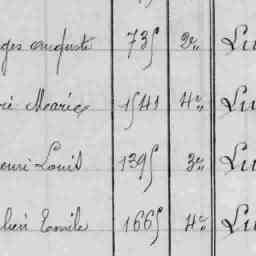 ges Auguste 735 2e Lu
rie Marie 1541 4e Lu
enri Louis 1395 3e Lu
lien Emile 1665 4e Lu